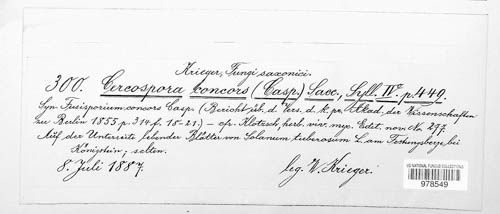 Krieger, Fungi saxonici.
300. Cercospora concors (Casp.) Sacc., Syll. IV. p. 449.
Syn. Fusisporium concors Casp. (Bericht üb. d. Vers. d. k. pr. Akad. der Wissenschaften
zu Berlin 1855. p. 314. f. 18-21.) – cfr. Klotzsch, herb. viv. myc. Edit. nov. No 297.
Auf der Unterseite lebender Blätter von Solanum tuberosum L. am bei
Königstein; selten.
8. Juli 1887. leg. W. Krieger.
US NATIONAL FUNGUS COLLECTIONS
978549